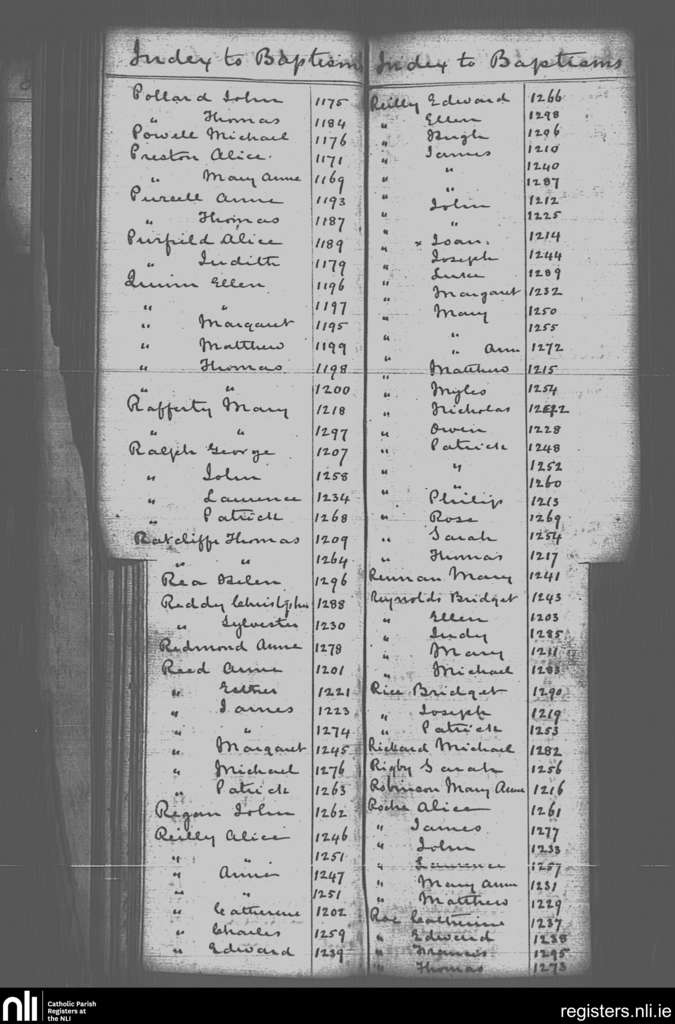 Index to Baptism
Pollard John 1175
" Thomas 1184
Powell Michael 1176
Preston Alice. 1171
" Mary Anne 1169
Purcell Anne 1193
" Thomas 1187
Purfield Alice 1189
" Judith 1179
Quinn Ellen 1196
" " 1197
" Margaret 1195
" Matthew 1199
" Thomas 1198
" " 1200
Rafferty Mary 1218
" " 1297
Ralph George 1207
" John 1258
" Laurence 1234
" Patrick 1268
Ratcliffe Thomas 1209
" " 1264
Rea Helen 1296
Reddy Christopher 1288
" Sylvester 1230
Redmond Anne 1278
Reed Anne 1201
" Esther 1221
" James 1223
" " 1274
" Margaret 1245
" Michael 1276
" Patrick 1263
Regan John 1262
Reilly Alice 1246
" " 1251
" Annie 1247
" " 1251
" Catherine 1202
" Charles 1259
" Edward 1239
Index to Baptisms
Reilly Edward 1266
" Ellen 1298
" Hugh 1296
" James 1210
" " 1240
" " 1287
" John 1212
" " 1225
" × Joan. 1214
" Joseph 1244
" Luke 1289
" Margaret 1232
" Mary 1250
" " 1255
" " Ann 1272
" Matthew 1215
" Myles 1254
" Nicholas
" Owen 1228
" Patrick 1248
" " 1252
" " 1260
" Philip 1213
" Rose 1269
" Sarah 1254
" Thomas 1217
Rennan Mary 1241
Reynolds Bridget 1243
" Ellen 1203
" Judy 1285
" Mary 1211
" Michael 1283
Rice Bridget 1290
" Joseph 1219
" Patrick 1253
Rickard Michael 1282
Rigby Sarah 1256
Robinson Mary Anne 1216
Roche Alice 1261
" James 1277
" John 1233
" Laurence 1257
" Mary Ann 1231
" Matthew 1229
Roe Catherine 1237
" Edward 1238
" Francis 1295
" Thomas 1273
nli
Catholic Parish
Registers at
the NLI
registers.nli.ie